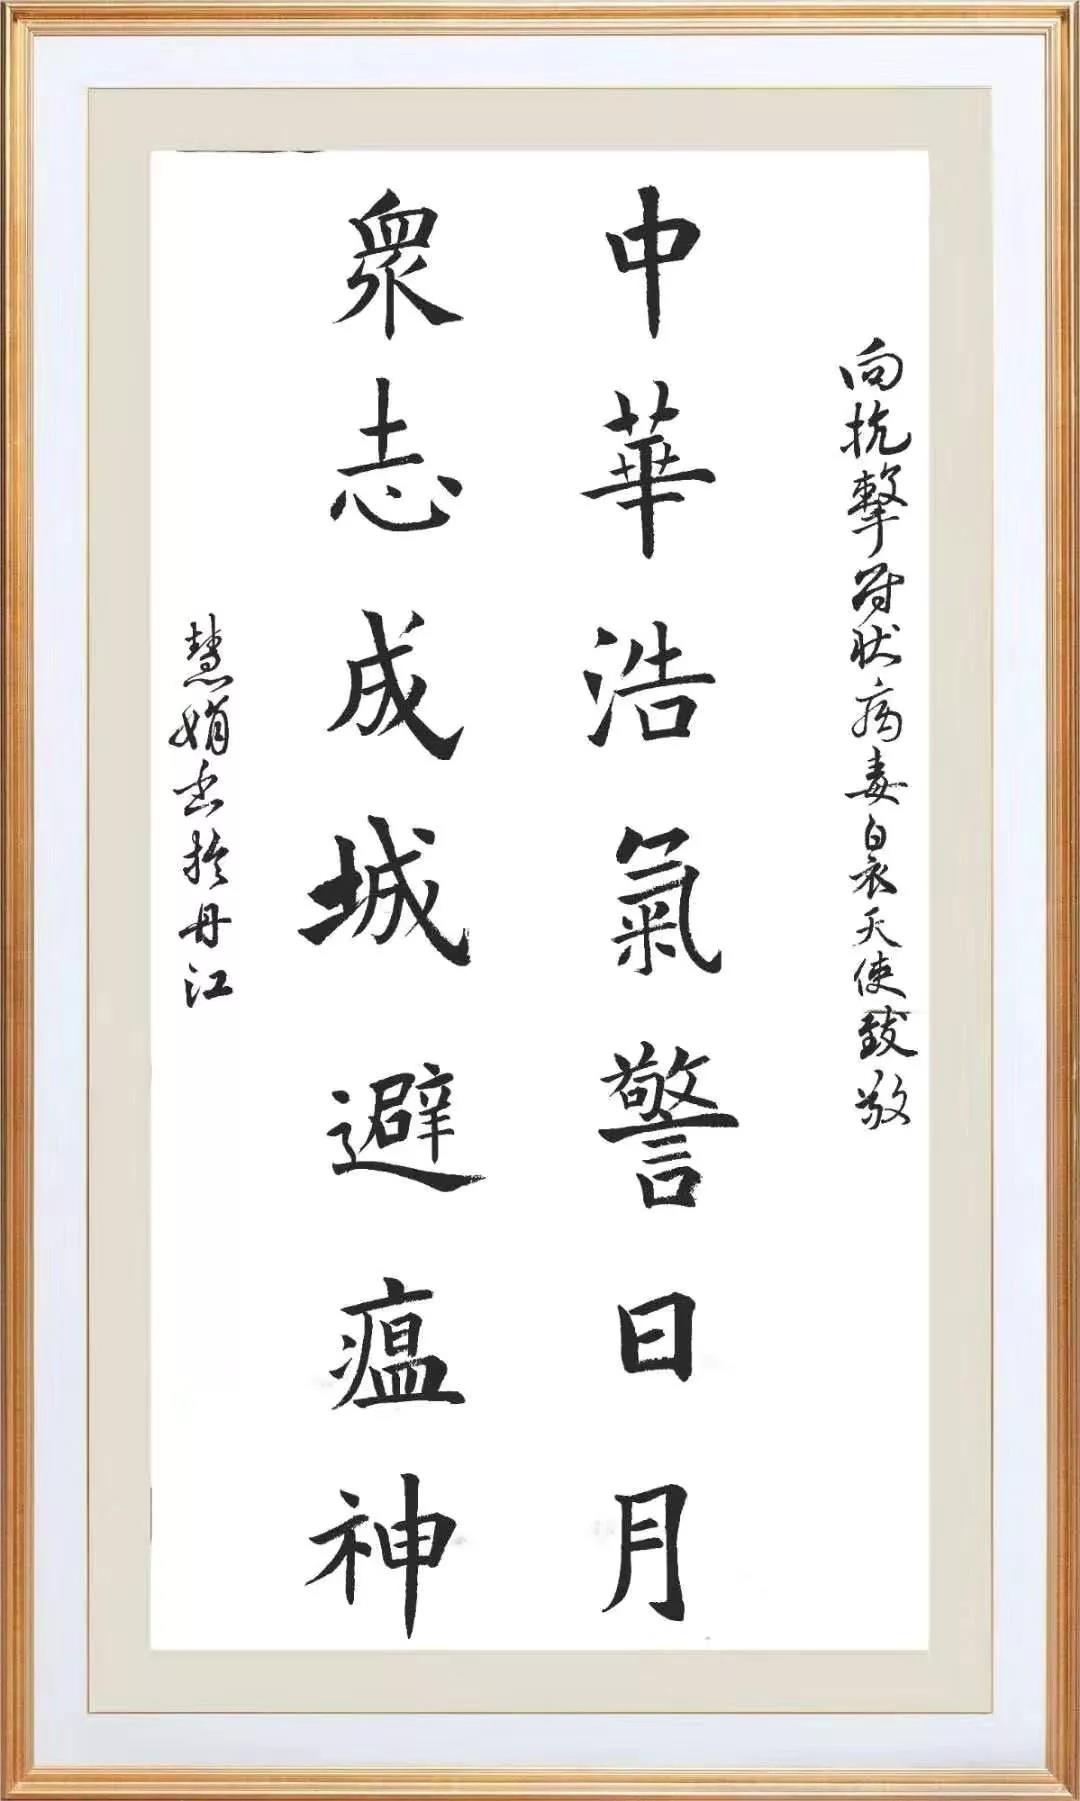 向抗擊冠状病毒白衣天使致敬
中華浩氣警日月
衆志成城避瘟神
慧娟书於丹江